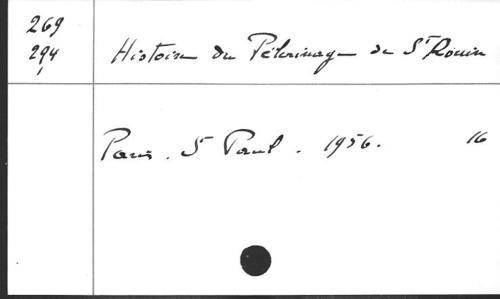 269
294
Histoire du Pèlerinage de St Rouin
Paris. St Paul. 1956. 16